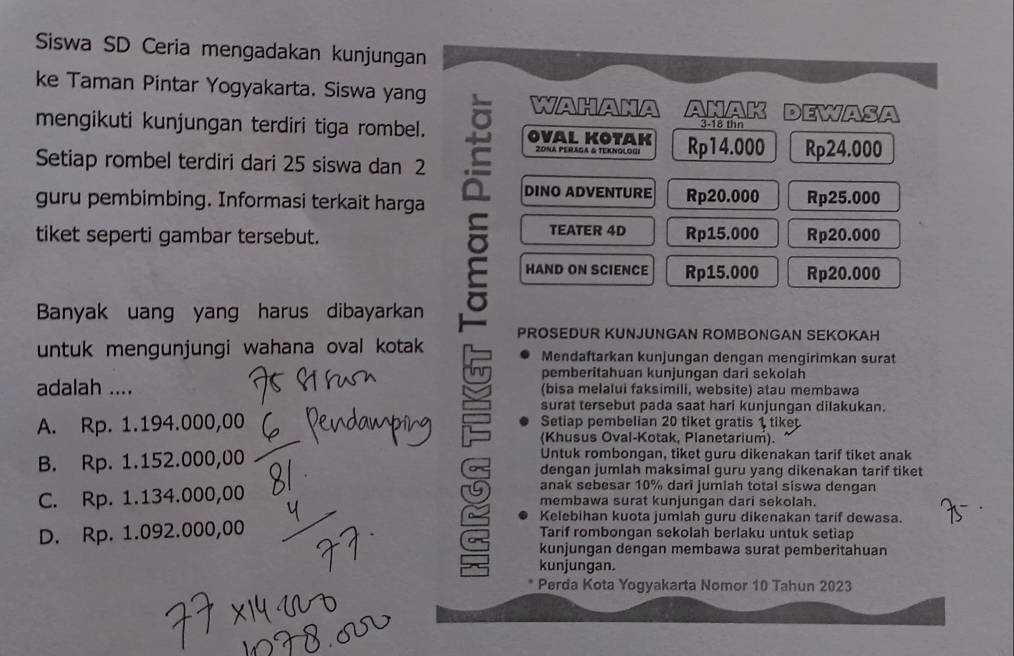 Siswa SD Ceria mengadakan kunjungan
ke Taman Pintar Yogyakarta. Siswa yang
mengikuti kunjungan terdiri tiga rombel.
Setiap rombel terdiri dari 25 siswa dan 2
guru pembimbing. Informasi terkait harga
tiket seperti gambar tersebut.
Banyak uang yang harus dibayarkan
untuk mengunjungi wahana oval kotak
adalah ....
A. Rp. 1.194.000,00
B. Rp. 1.152.000,00
C. Rp. 1.134.000,00
D. Rp. 1.092.000,00
75 siswa
6 Pendamping
81.
4
77.
77 x 14.000
1078.000
HARGA TIKET Taman Pintar
WAHANA ANAK DEWASA
3-18 thn
OVAL KOTAK Rp14.000 Rp24.000
ZONA PERAGA & TEKNOLOGI
DINO ADVENTURE Rp20.000 Rp25.000
TEATER 4D Rp15.000 Rp20.000
HAND ON SCIENCE Rp15.000 Rp20.000
PROSEDUR KUNJUNGAN ROMBONGAN SEKOKAH
• Mendaftarkan kunjungan dengan mengirimkan surat
pemberitahuan kunjungan dari sekolah
(bisa melalui faksimili, website) atau membawa
surat tersebut pada saat hari kunjungan dilakukan.
• Setiap pembelian 20 tiket gratis 1 tiket
(Khusus Oval-Kotak, Planetarium).
Untuk rombongan, tiket guru dikenakan tarif tiket anak
dengan jumlah maksimal guru yang dikenakan tarif tiket
anak sebesar 10% dari jumlah total siswa dengan
membawa surat kunjungan dari sekolah.
• Kelebihan kuota jumlah guru dikenakan tarif dewasa.
Tarif rombongan sekolah berlaku untuk setiap
kunjungan dengan membawa surat pemberitahuan
kunjungan.
* Perda Kota Yogyakarta Nomor 10 Tahun 2023
75.